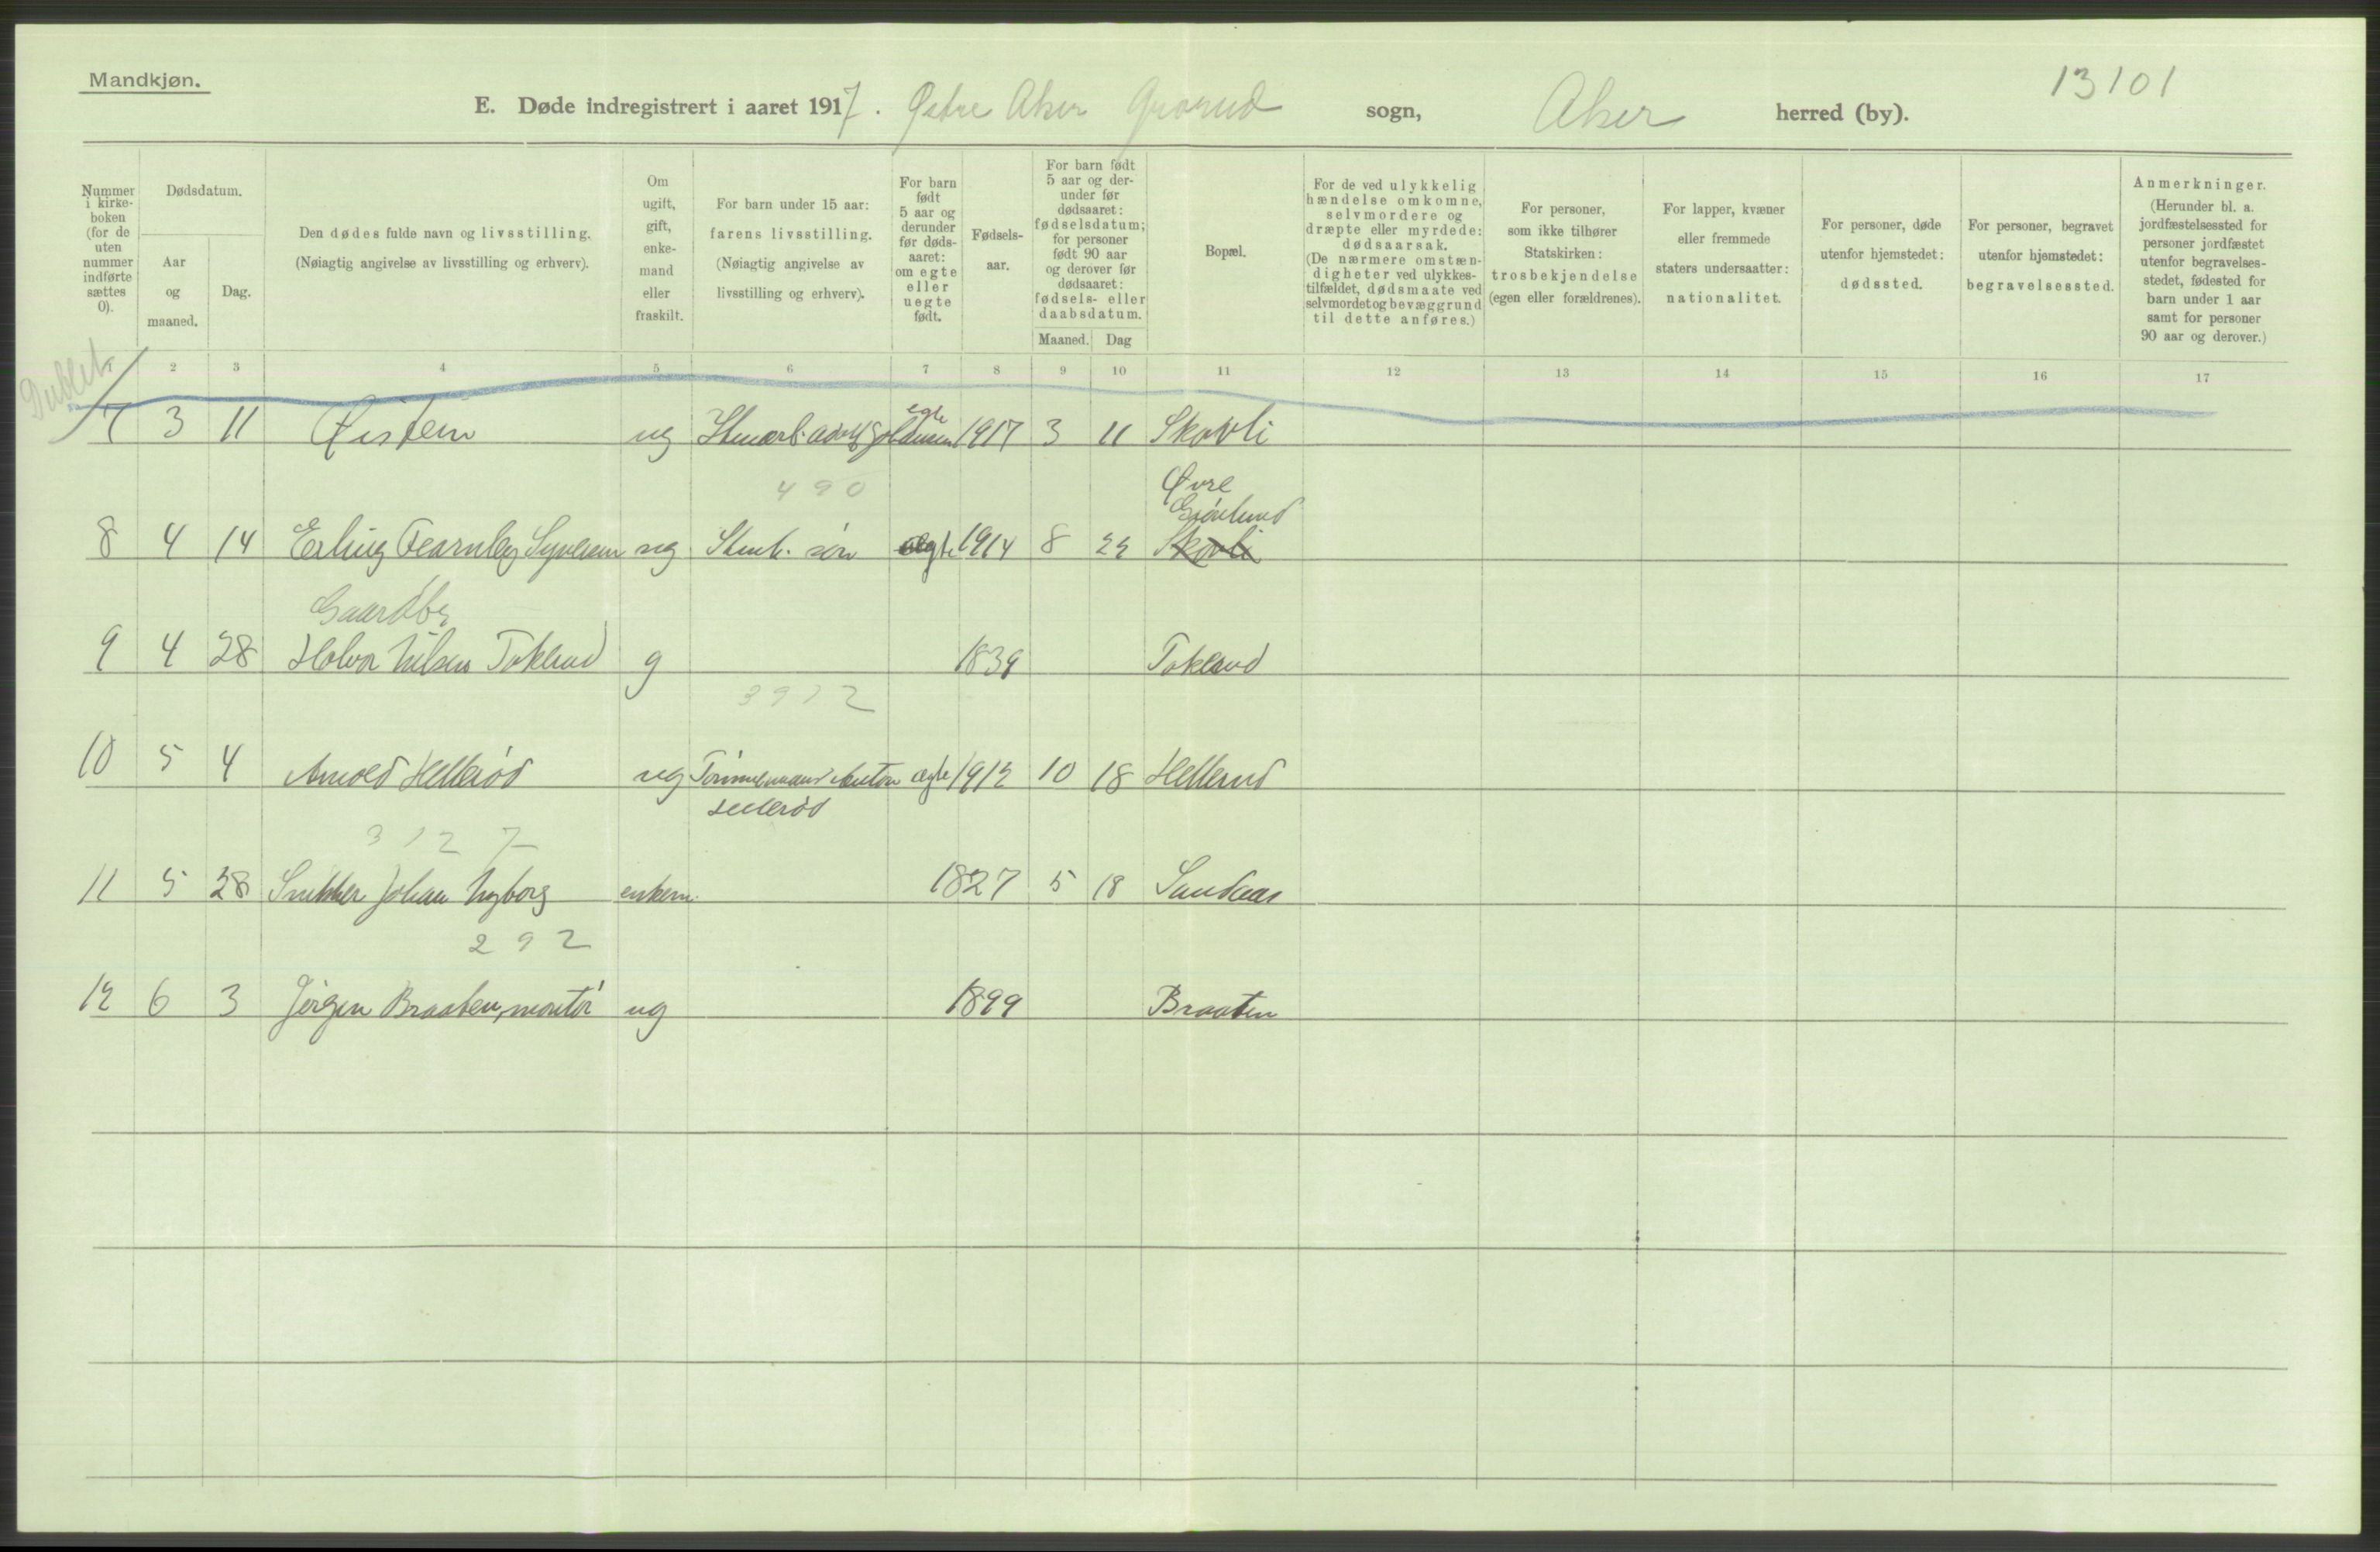 Mandkjøn.
13101
E. Døde indregistrert i aaret 1917. Østre Aker Grorud sogn, Aker herred (by).
Nummer i kirke-boken (for de uten nummer indførte sættes 0).
Dødsdatum.
Aar og maaned.
Dag.
Den dødes fulde navn og livsstilling.
(Nøiagtig angivelse av livsstilling og erhverv).
Om ugift, gift, enke-mand eller fraskilt.
For barn under 15 aar: farens livsstilling.
(Nøiagtig angivelse av livsstilling og erhverv).
For barn født 5 aar og derunder før døds-aaret: om egte eller uegte født.
Fødsels-aar.
For barn født 5 aar og der-under før dødsaaret: fødselsdatum; for personer født 90 aar og derover før dødsaaret: fødsels- eller daabsdatum.
Maaned.
Dag
Bopæl.
For de ved ulykkelig hændelse omkomne, selvmordere og dræpte eller myrdede: dødsaarsak.
(De nærmere omstæn-digheter ved ulykkes-tilfældet, dødsmaate ved selvmordet og bevæggrund til dette anføres.)
For personer, som ikke tilhører Statskirken: trosbekjendelse (egen eller forældrenes).
For lapper, kvæner eller fremmede staters undersaatter: nationalitet.
For personer, døde utenfor hjemstedet: dødssted.
For personer, begravet utenfor hjemstedet: begravelsessted.
Anmerkninger.
(Herunder bl. a. jordfæstelsessted for personer jordfæstet utenfor begravelses-stedet, fødested for barn under 1 aar samt for personer 90 aar og derover.)
Dublet
2 3 4 5 6 7 8 9 10 11 12 13 14 15 16 17
7 3 11 Øistein ug Stenarb. Adolf egte 1917 3 11 Skovli
490
Øvre Grönlund
8 4 14 Erling Fearnley ug Stenh. sön egte 1914 8 22 Skovli
Gaardbr
9 4 28 Halvor Nilsen Tokerud g 1839 Tokerud
3912
10 5 4 Arnold Hellerød ug Tömmermand Anton Hellerød egte 1912 10 18 Hellerud
3127
11 5 28 Snekker Johan Nyborg enkem. 1827 5 18 Sandaas
292
12 6 3 Jörgen Braaten, montör ug 1899 Braaten